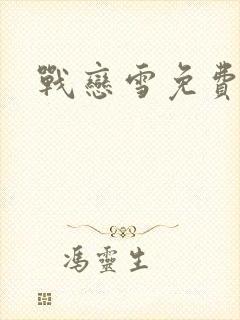 戰戀雪免費
馮靈生